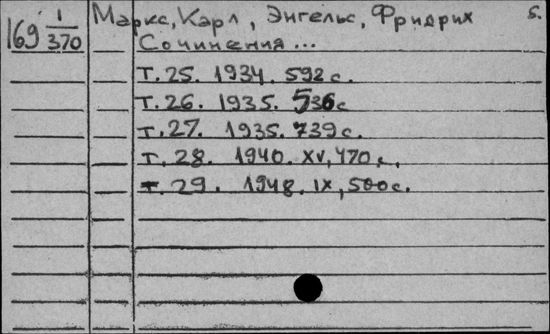 169 1/370
Маркс, Карл, Энгельс, Фридрих 5.
Сочинения ...
Т. 25. 1934. 592 с.
Т. 26. 1935. 536 с
Т. 27. 1935. 739 с.
Т. 28. 1940. XV, 470 с.
Т. 29. 1948. IX, 500 с.